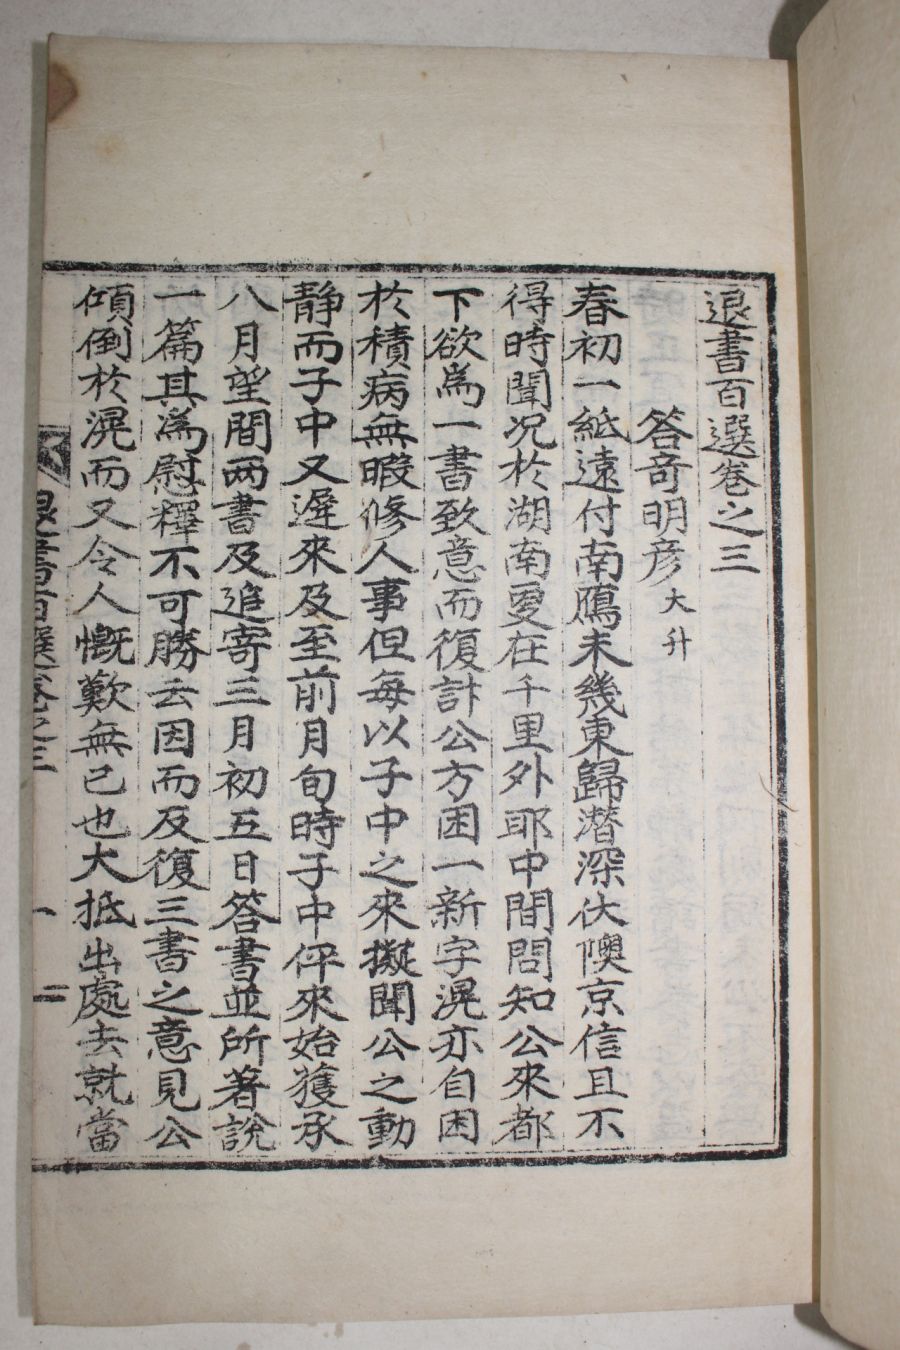 退書百選卷之三
答奇明彦大升
春初一紙遠付南鴈未幾東歸潜深伏隩京信且不
得時聞况於湖南夐在千里外耶中間問知公來都
下欲爲一書致意而復計公方困一新字滉亦自困
於積病無暇修人事但每以子中之來擬聞公之動
静而子中又遅來及至前月旬時子中伻來始獲承
八月望間两書及追寄三月初五日答書並所著說
一篇其爲慰釋不可勝云因而及復三書之意見公
傾倒於滉而又令人慨歎無已也大抵出處去就當
退書百選卷之三 一